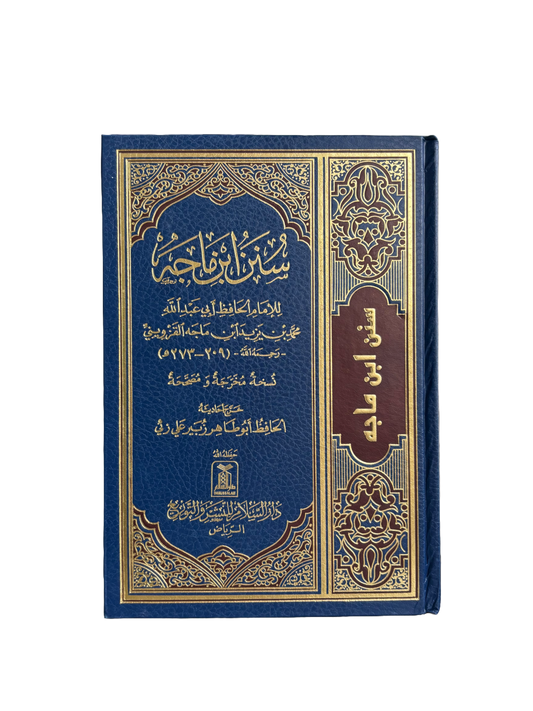 سُنَنُ ابْنِ مَاجَهْ
لِلإمَامِ الحَافِظِ أَبِي عَبْدِ اللَّهِ
مُحَمَّدِ بْنِ يَزِيدَ ابْنِ مَاجَه القَزْوِينِيِّ
-رَحِمَهُ اللهُ- (٢٠٩-٢٧٣ه)
نُسْخَةٌ مُخَرَّجَةٌ وَ مُصَحَّحَةٌ
خَرَّجَ أَحَادِيثَهُ
الحَافِظُ أَبُو طَاهِر زُبَير عَلِي زَئي
حفظه الله
دار السلام
DARUSSALAM
دَارُ السَّلَامِ لِلنَّشْرِ وَالتَّوْزِيعِ
الرِّيَاض
سنن ابن ماجه